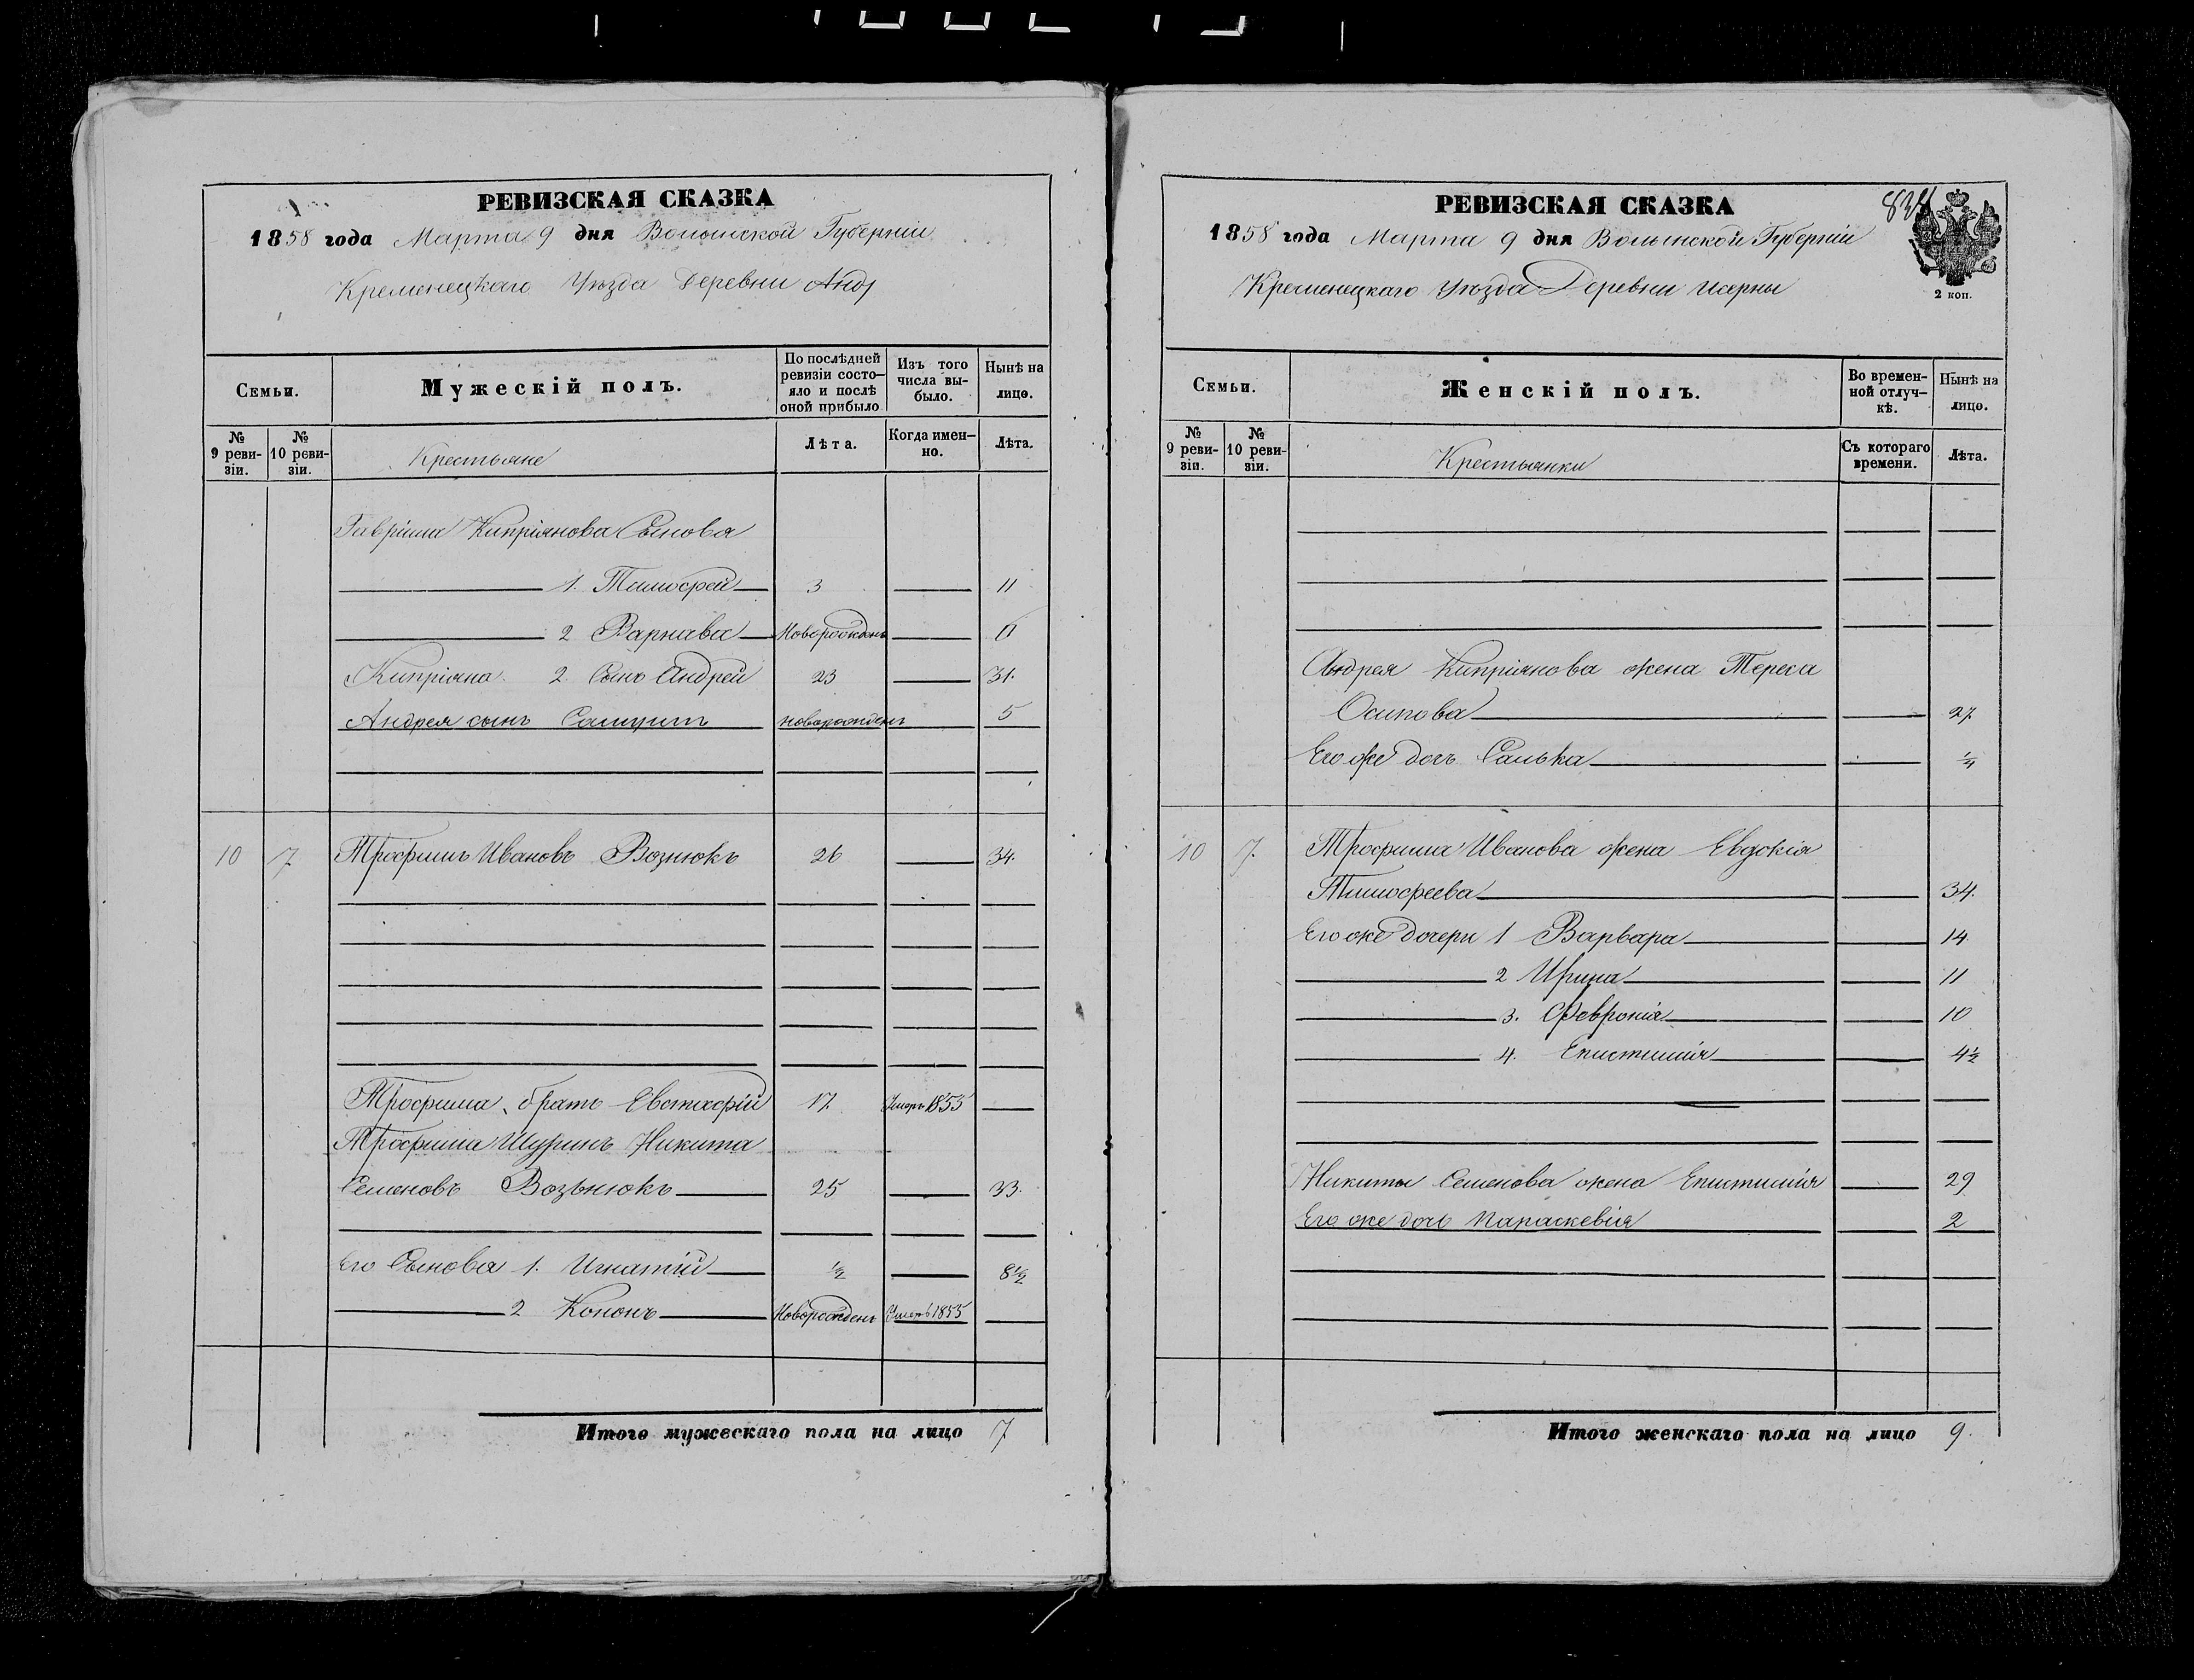 РЕВИЗСКАЯ СКАЗКА
1858 года Марта 9 дня Волынской Губерніи
Кременецкаго Уѣзда Деревни
Семьи.
Мужескій полъ.
По послѣдней ревизіи состо-
яло и послѣ оной прибыло
Изъ того числа вы-
было.
Нынѣ на лицо.
№ 9 реви-
зіи.
№ 10 реви-
зіи.
Крестьяне
Лѣта.
Когда имен-
но.
Лѣта.
Гавріила Кипріянова Сынова
1. Тимофей 3 11
2 Варнава Новорожденъ 6
Кипріяна 2 Сынъ Андрей 23 31.
Андрея сынъ Самуилъ новорожденъ 5
10 7 Трофимъ Ивановъ Вознюкъ 26 34.
Трофима братъ Евстафій 17 Умеръ 1855
Трофима Шуринъ Никита
Семеновъ Возьнюкъ 25 33.
Его Сынова 1. Игнатій ½ 8½
2 Кононъ Новорожденъ Умеръ 1855
Итого мужескаго пола на лицо 7
РЕВИЗСКАЯ СКАЗКА
1858 года Марта 9 дня Волынской Губерніи
Кременецкаго Уѣзда Деревни
2 коп.
Семьи.
Женскій полъ.
Во времен-
ной отлуч-
кѣ.
Нынѣ на лицо.
№ 9 реви-
зіи.
№ 10 реви-
зіи.
Крестьянки
Съ котораго времени.
Лѣта.
Андрея Кипріянова жена Терега
Осипова 27
Его же дочь Салька
10 7. Трофима Иванова жена Евдокія
Тимофеева 34.
Его же дочери 1 Варвара 14
2 Ирина 11
3. Февронія 10
4. Епистимія 4½
Никиты Семенова жена Епистимія 29
Его же дочь Параскевія 2
Итого женскаго пола на лицо 9.